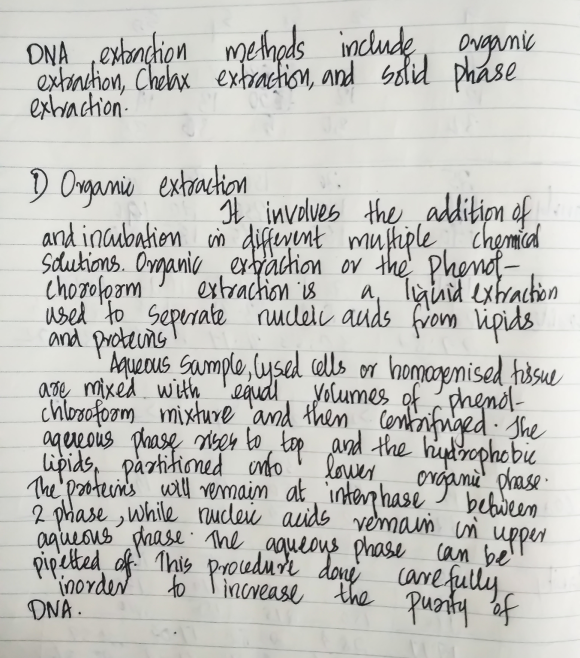 DNA extraction methods include organic
extraction, Chelax extraction, and solid phase
extraction.
1) Organic extraction
It involves the addition of
and incubation in different multiple chemical
solutions. Organic extraction or the phenol-
choroform extraction is a liquid extraction
used to seperate nucleic acids from lipids
and proteins
Aqueous sample, lysed cells or homogenised tissue
are mixed with equal volumes of phenol-
chloroform mixture and then centrifuged. The
aqueous phase rises to top and the hydrophobic
lipids, partitioned into lower organic phase.
The proteins will remain at interphase between
2 phase, while nucleic acids remain in upper
aqueous phase. The aqueous phase can be
pipetted off. This procedure done carefully
inorder to increase the purity of
DNA.